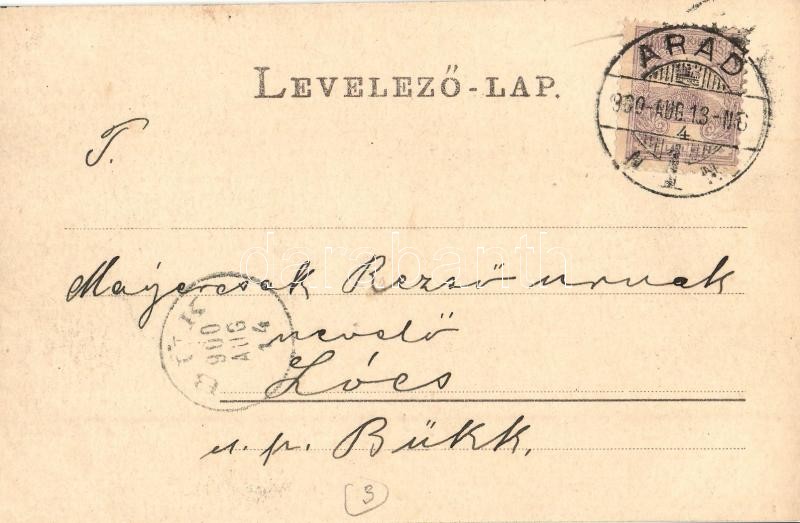 LEVELEZŐ-LAP.
ARAD
900-AUG.13-N6
4
N 1 N
T.
Majercsak Rezső urnak
nevelő
Lócs
u. p. Bükk.
BÜK
900
AUG
14
3
darabanth